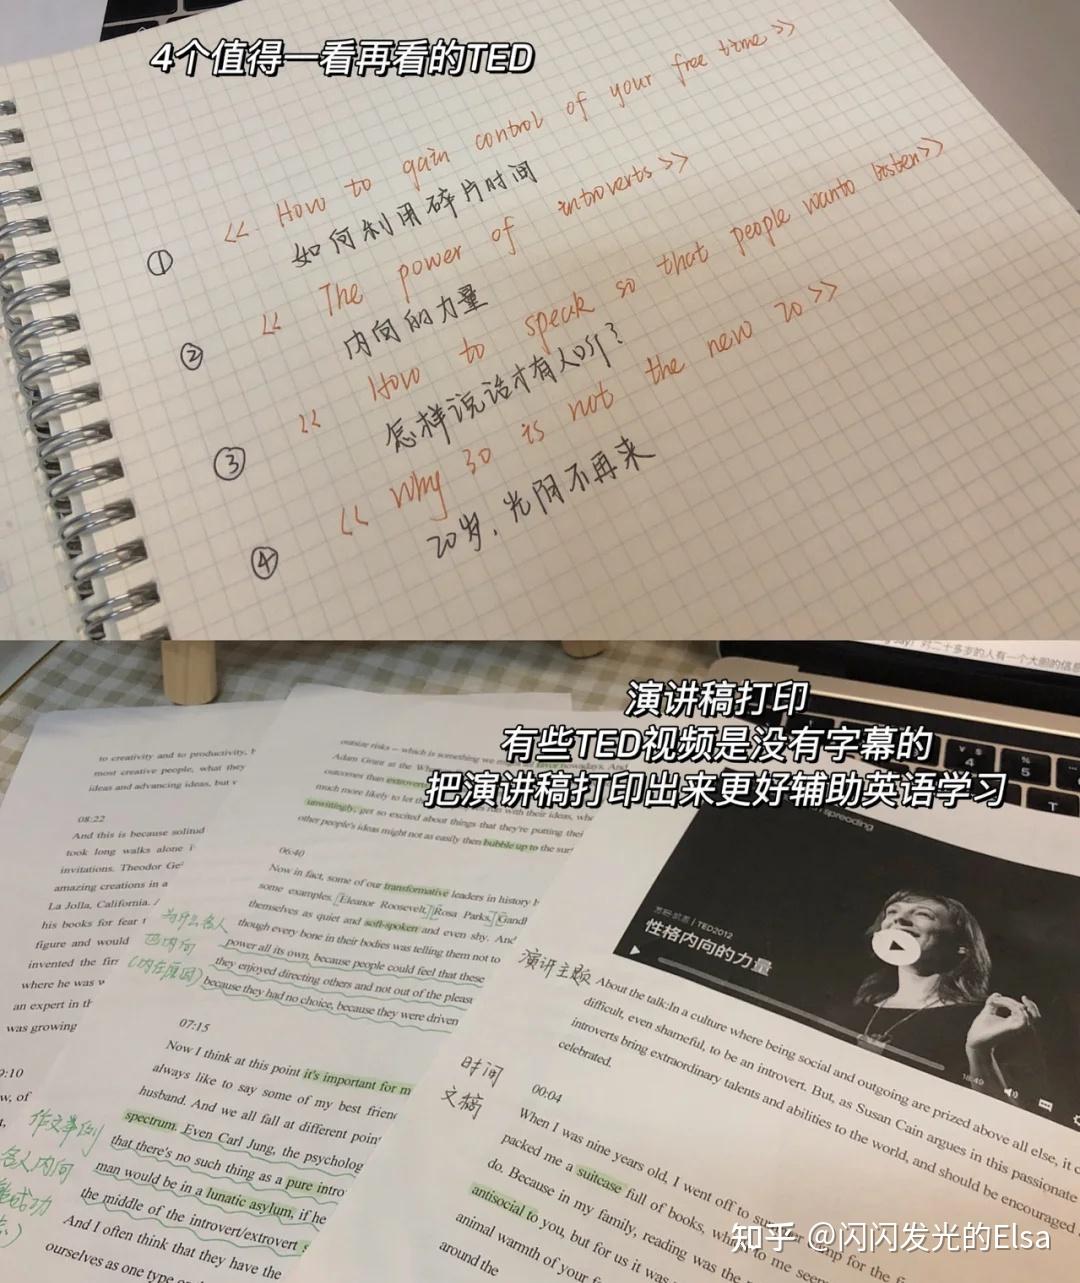 4个值得一看再看的TED
① << How to gain control of your free time >>
如何利用碎片时间
② << The power of introverts >>
内向的力量
③ << How to speak so that people wanto listen >>
怎样说话才有人听?
④ << Why 30 is not the new 20 >>
20岁，光阴不再来
演讲稿打印
有些TED视频是没有字幕的
把演讲稿打印出来更好辅助英语学习
对二十多岁的人有一个大胆的信息
to creativity and to productivity,
most creative people, what they
ideas and advancing ideas, but
08:22
And this is because solitud
took long walks alone
invitations. Theodor Ge
amazing creations in a
La Jolla, California.
his books for fear
figure and would
invented the fir
where he was
an expert in
was growing
outsize risks -- which is something we might all favor nowadays. And
Adam Grant at the
outcomes than
much more likely to let
unwittingly, get so excited about things that they're putting their
other people's ideas might not as easily then bubble up to the sur
06:40
Now in fact, some of our transformative leaders in history
some examples. [Eleanor Roosevelt,][Rosa Parks,][Gandh
themselves as quiet and soft-spoken and even shy. And
though every bone in their bodies was telling them not to
power all its own, because people could feel that these
they enjoyed directing others and not out of the pleas
because they had no choice, because they were driven
为什么名人
也内向
(内在原因)
07:15
Now I think at this point it's important for m
always like to say some of my best frien
husband. And we all fall at different poin
spectrum. Even Carl Jung, the psycholog
that there's no such thing as a pure intro
man would be in a lunatic asylum, if he
the middle of the introvert/extrovert s
And I often think that they have the
ourselves as one type o
9:10
w, of
作文举例
名人内向
能成功
spreading
苏珊·凯恩 | TED2012
性格内向的力量
18:49
演讲主题
About the talk:In a culture where being social and outgoing are prized above all else, it c
difficult, even shameful, to be an introvert. But, as Susan Cain argues in this passionate
introverts bring extraordinary talents and abilities to the world, and should be encouraged
celebrated.
时间
文稿
00:04
When I was nine years old, I went off to summer camp for the fi
packed me a suitcase full of books, which to me seem
do. Because in my family, reading was the
antisocial to you, but for us it was
animal warmth of your f
around the
知乎 @闪闪发光的Elsa